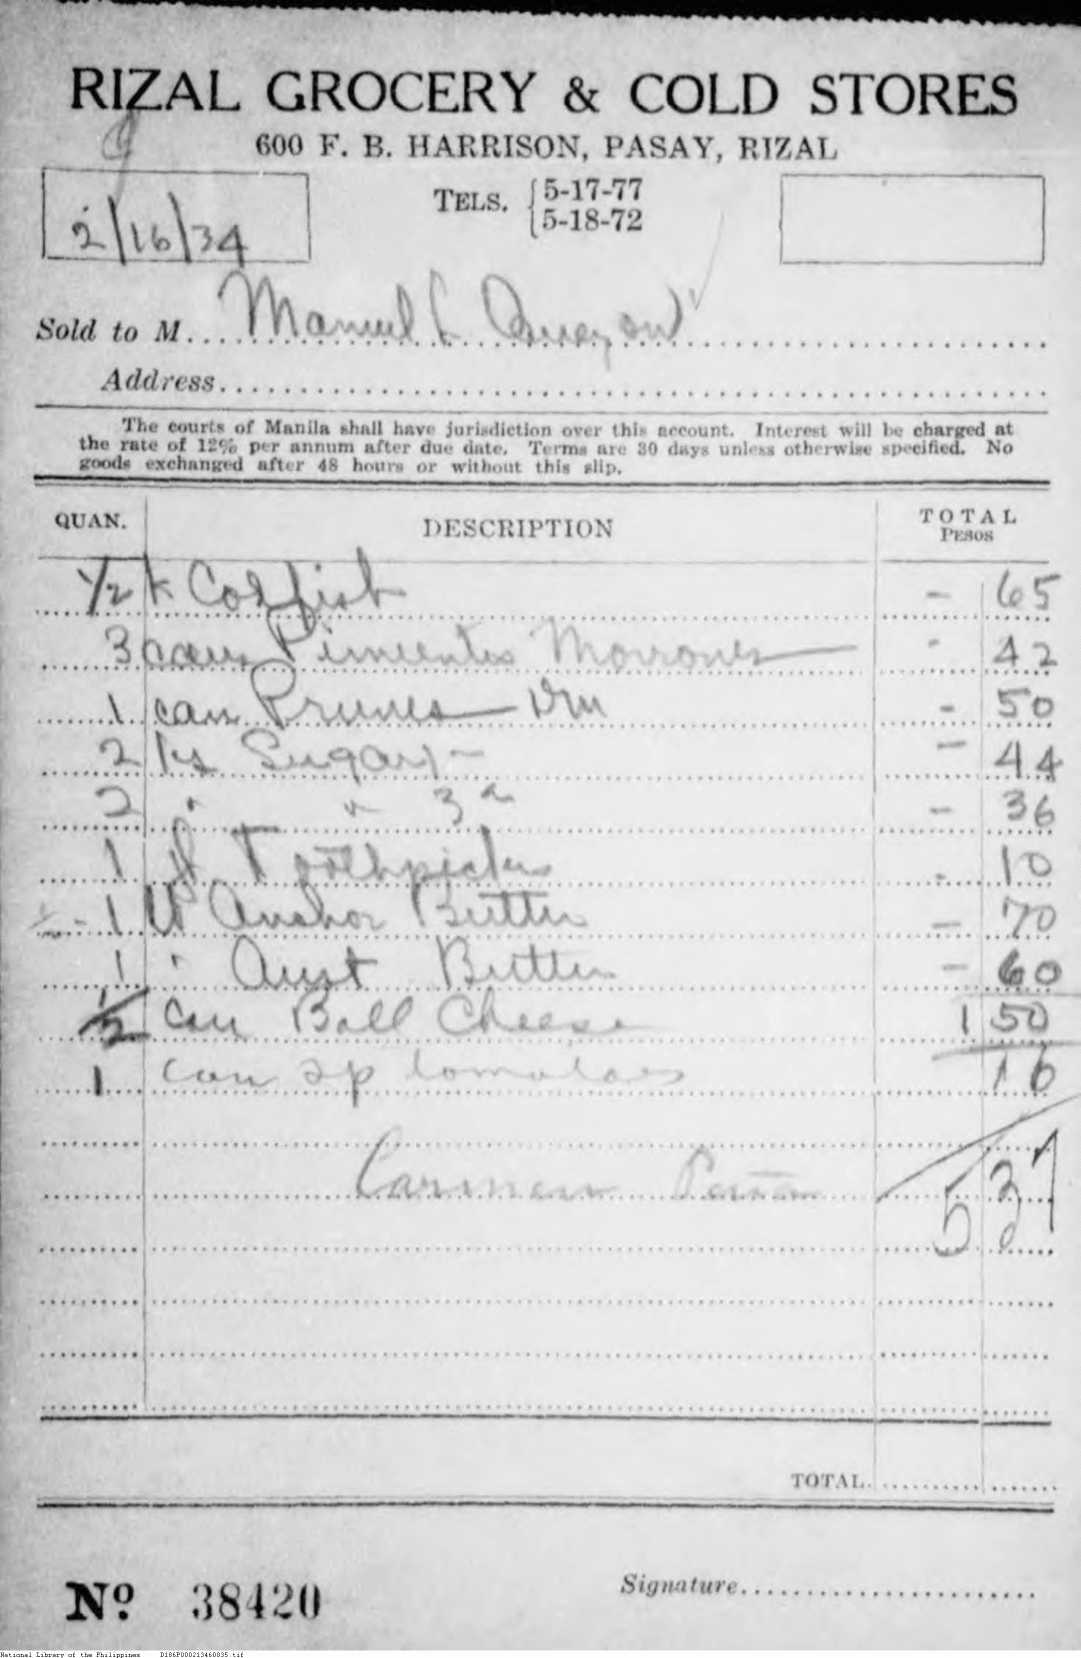 RIZAL GROCERY & COLD STORES
600 F. B. HARRISON, PASAY, RIZAL
TELS. { 5-17-77
5-18-72
2/16/34
Sold to M. Manuel L Quezon
Address
The courts of Manila shall have jurisdiction over this account. Interest will be charged at
the rate of 12% per annum after due date. Terms are 30 days unless otherwise specified. No
goods exchanged after 48 hours or without this slip.
QUAN. DESCRIPTION TOTAL
PESOS
1/2 k Codfish - 65
3 cans Pimientos Morrones - 42
1 can Prunes - 50
2 ks Sugar - - 44
2 " " 3a - 36
1 Toothpicks - 10
1 Anchor Butter - 70
1 " Aust Butter - 60
1/2 can Ball Cheese 1 50
1 can sp tomatoes 16
Carmen
5 37
TOTAL
Nº 38420
Signature
National Library of the Philippines D186P000213460035.tif